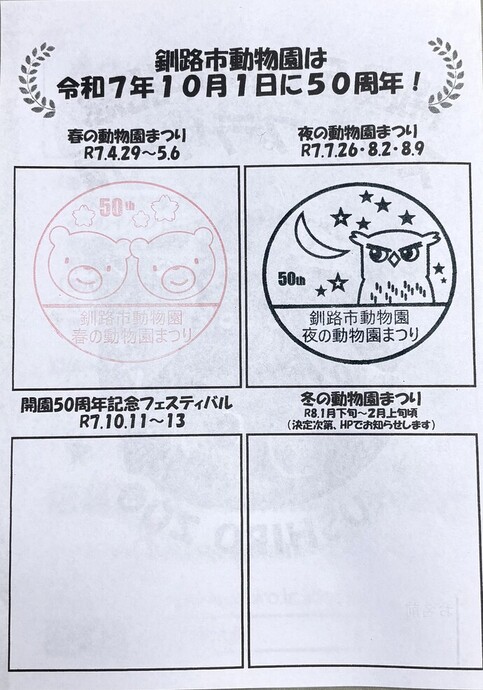 釧路市動物園は
令和7年10月1日に50周年!
春の動物園まつり
R7.4.29～5.6
夜の動物園まつり
R7.7.26・8.2・8.9
50th
釧路市動物園
春の動物園まつり
50th
釧路市動物園
夜の動物園まつり
開園50周年記念フェスティバル
R7.10.11～13
冬の動物園まつり
R8.1月下旬～2月上旬頃
(決定次第、HPでお知らせします)